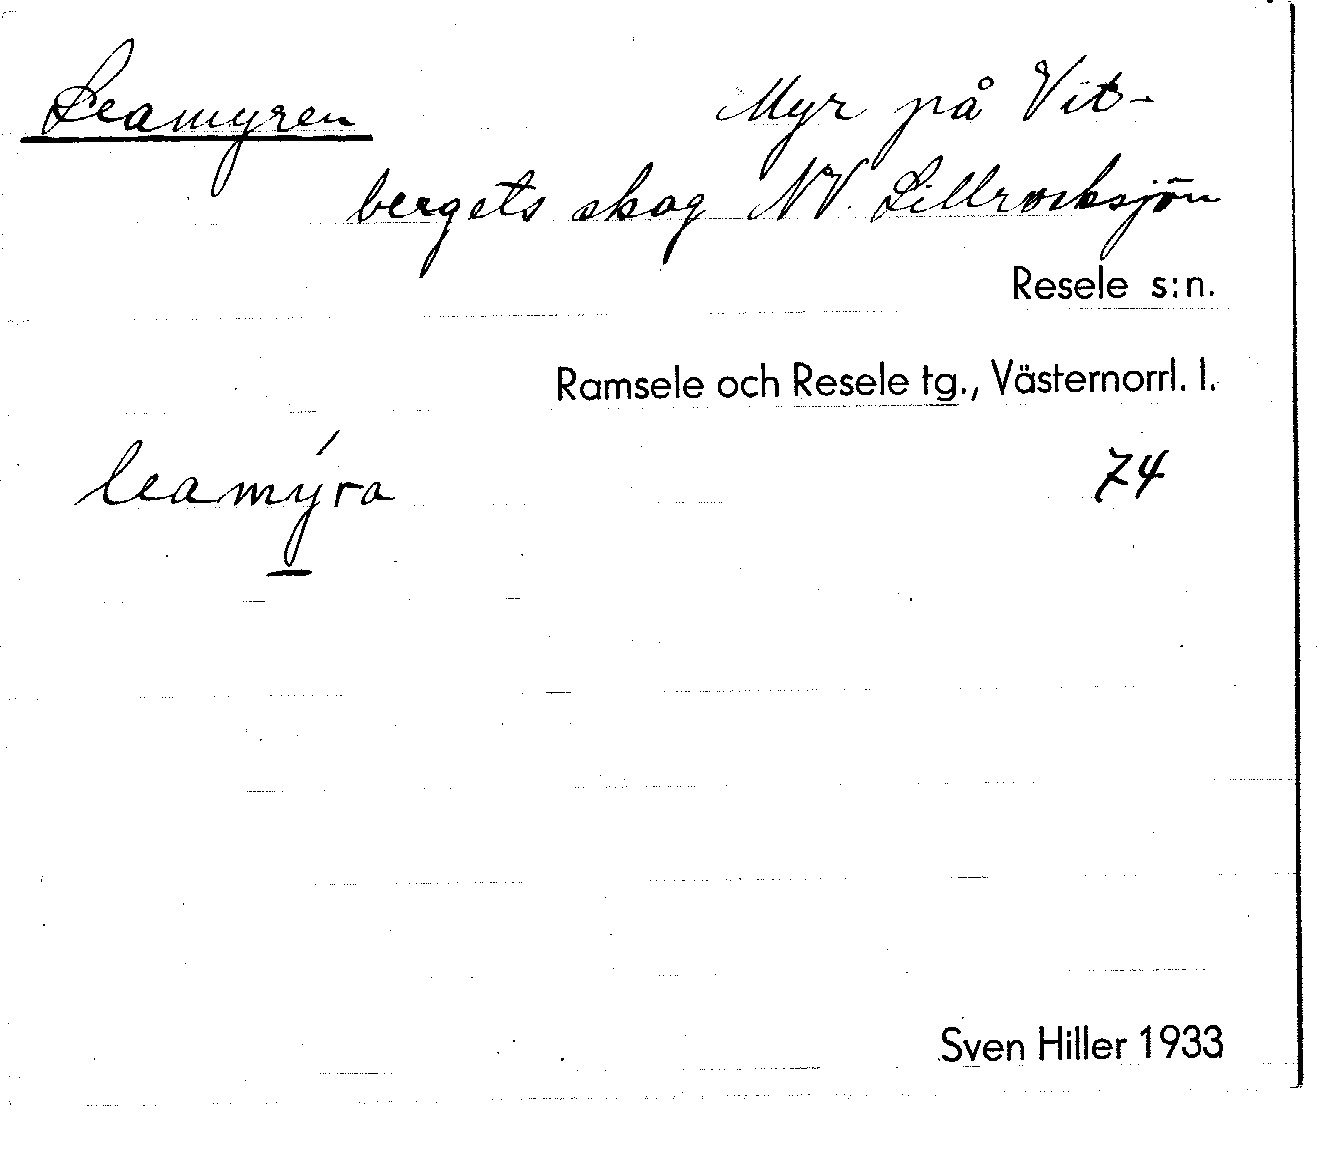 Leamyren Myr på Vit-
bergets skog NV. Lillrocksjön
Resele s:n.
Ramsele och Resele tg., Västernorrl. l.
leamýra 74
Sven Hiller 1933